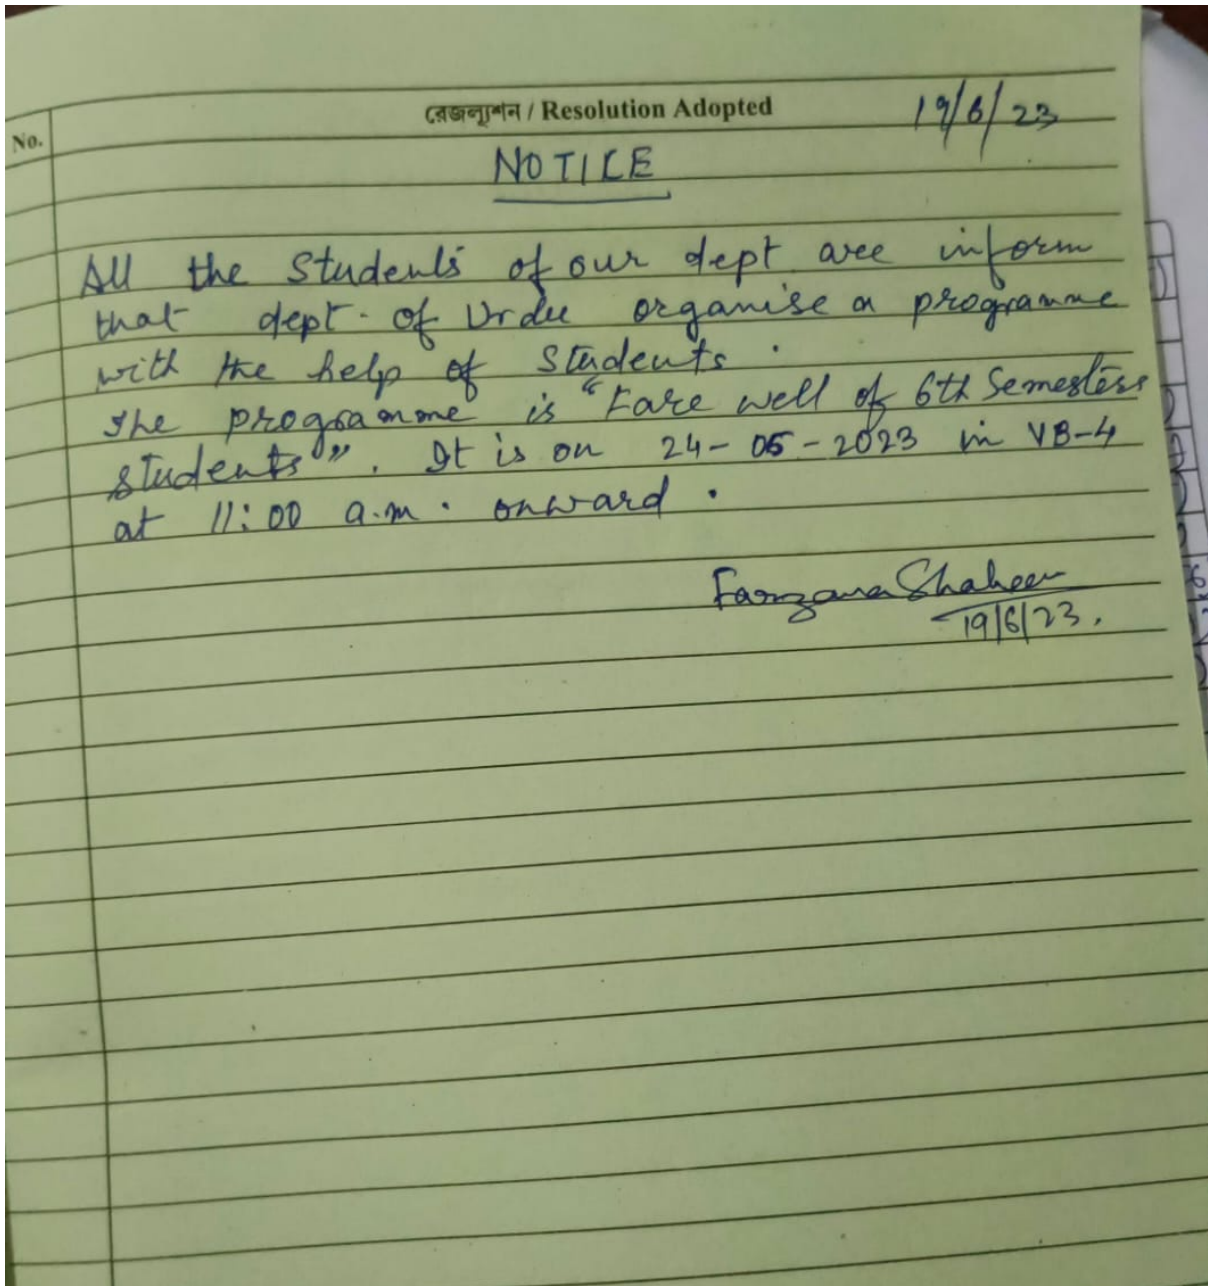 No.
রেজল্যুশন / Resolution Adopted
19/6/23
NOTICE
All the Students of our dept are inform
that dept. of Urdu organise a programme
with the help of Students.
The programme is "Fare well of 6th Semesters
students". It is on 24-05-2023 in VB-4
at 11:00 a.m. onward.
Farzana Shaheen
19/6/23.